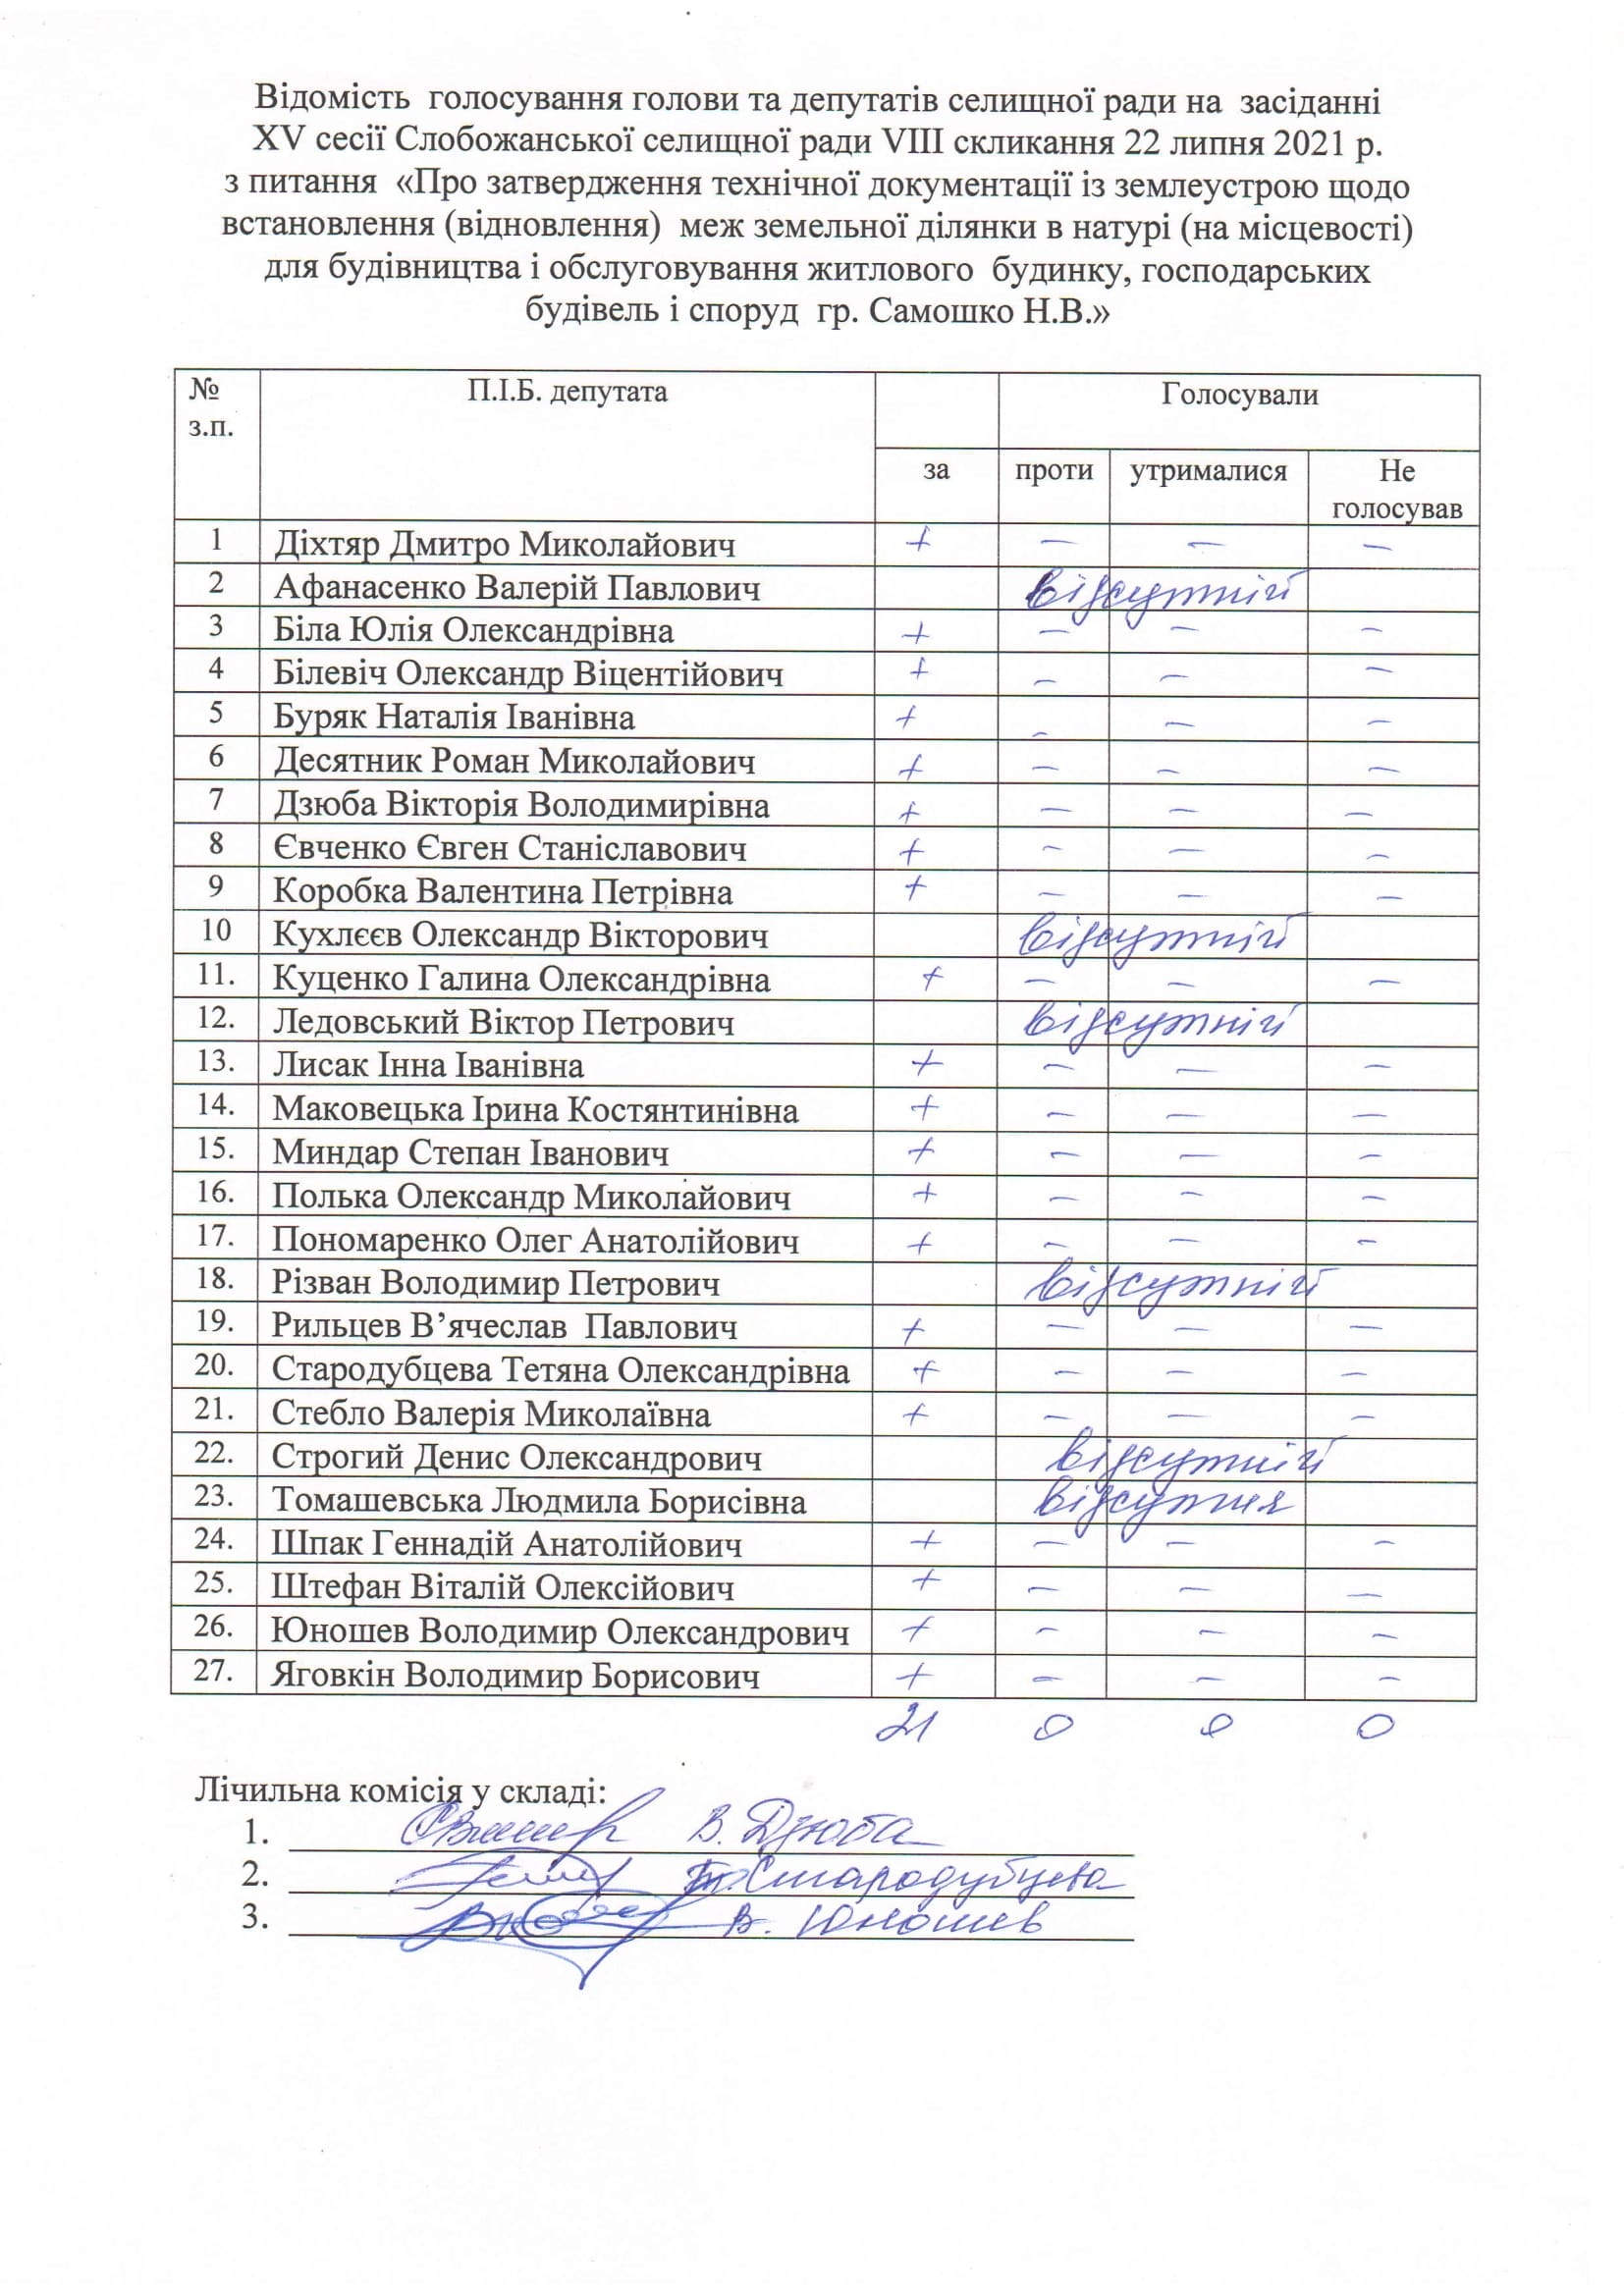 Відомість голосування голови та депутатів селищної ради на засіданні
XV сесії Слобожанської селищної ради VIII скликання 22 липня 2021 р.
з питання «Про затвердження технічної документації із землеустрою щодо
встановлення (відновлення) меж земельної ділянки в натурі (на місцевості)
для будівництва і обслуговування житлового будинку, господарських
будівель і споруд гр. Самошко Н.В.»
№ П.І.Б. депутата Голосували
з.п.
за проти утрималися Не
голосував
1 Діхтяр Дмитро Миколайович + – – –
2 Афанасенко Валерій Павлович відсутній
3 Біла Юлія Олександрівна + – – –
4 Білевіч Олександр Віцентійович + – – –
5 Буряк Наталія Іванівна + – – –
6 Десятник Роман Миколайович + – – –
7 Дзюба Вікторія Володимирівна + – – –
8 Євченко Євген Станіславович + – – –
9 Коробка Валентина Петрівна + – – –
10 Кухлєєв Олександр Вікторович відсутній
11. Куценко Галина Олександрівна + – – –
12. Ледовський Віктор Петрович відсутній
13. Лисак Інна Іванівна + – – –
14. Маковецька Ірина Костянтинівна + – – –
15. Миндар Степан Іванович + – – –
16. Полька Олександр Миколайович + – – –
17. Пономаренко Олег Анатолійович + – – –
18. Різван Володимир Петрович відсутній
19. Рильцев В’ячеслав Павлович + – – –
20. Стародубцева Тетяна Олександрівна + – – –
21. Стебло Валерія Миколаївна + – – –
22. Строгий Денис Олександрович відсутній
23. Томашевська Людмила Борисівна відсутня
24. Шпак Геннадій Анатолійович + – – –
25. Штефан Віталій Олексійович + – – –
26. Юношев Володимир Олександрович + – – –
27. Яговкін Володимир Борисович + – – –
21 0 0 0
Лічильна комісія у складі:
1. В. Дзюба
2. Т. Стародубцева
3. В. Юношев